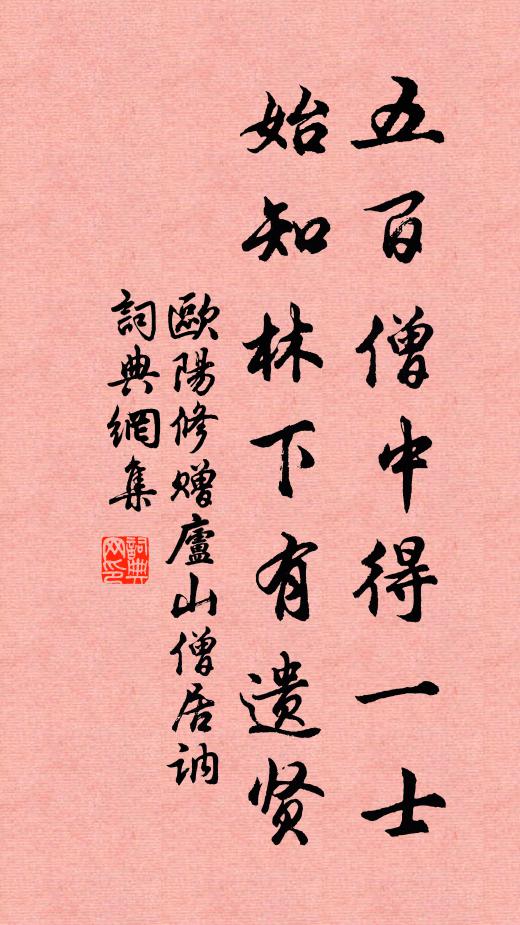 五百僧中得一士
始知林下有遗贤
歐陽修赠廬山僧居讷
詞典網集
詞典
网印